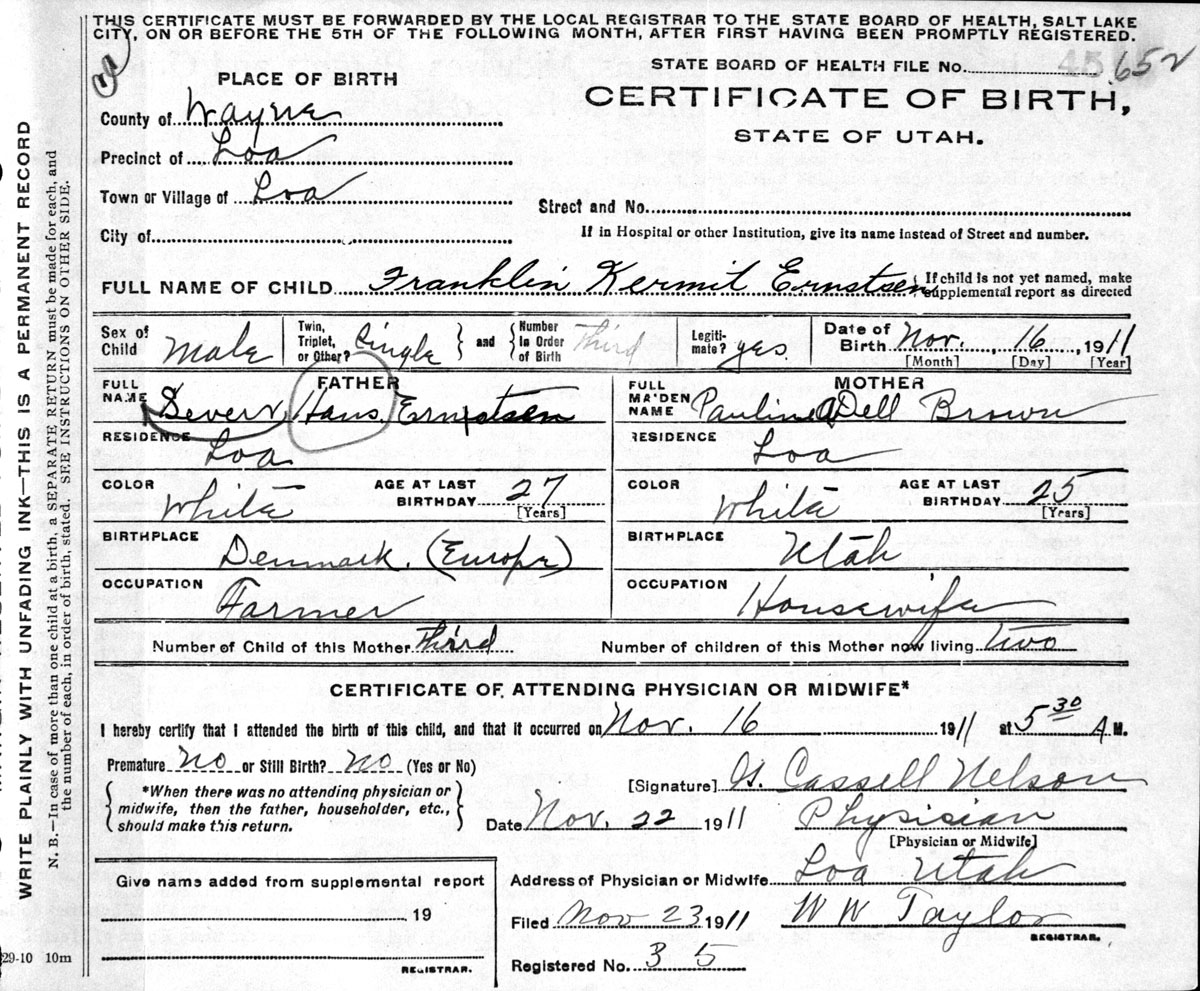 THIS CERTIFICATE MUST BE FORWARDED BY THE LOCAL REGISTRAR TO THE STATE BOARD OF HEALTH, SALT LAKE
CITY, ON OR BEFORE THE 5TH OF THE FOLLOWING MONTH, AFTER FIRST HAVING BEEN PROMPTLY REGISTERED.
WRITE PLAINLY WITH UNFADING INK—THIS IS A PERMANENT RECORD
N. B.—In case of more than one child at a birth, a SEPARATE RETURN must be made for each, and
the number of each, in order of birth, stated. SEE INSTRUCTIONS ON OTHER SIDE.
PLACE OF BIRTH
STATE BOARD OF HEALTH FILE No. 652
CERTIFICATE OF BIRTH,
STATE OF UTAH.
County of Wayne
Precinct of Loa
Town or Village of Loa
Street and No.
City of
If in Hospital or other Institution, give its name instead of Street and number.
FULL NAME OF CHILD Franklin Kermit Ernstsen
If child is not yet named, make
supplemental report as directed
Sex of Child Male
Twin, Triplet, or Other? Single
and
Number in Order of Birth Third
Legiti-mate? yes
Date of Birth Nov. 16, 1911
[Month] [Day] [Year]
FATHER
FULL NAME Severn Hans Ernstsen
RESIDENCE Loa
COLOR White
AGE AT LAST BIRTHDAY 27
[Years]
BIRTHPLACE Denmark. (Europe)
OCCUPATION Farmer
MOTHER
FULL MAIDEN NAME Pauline ADell Brown
RESIDENCE Loa
COLOR White
AGE AT LAST BIRTHDAY 25
[Years]
BIRTHPLACE Utah
OCCUPATION Housewife
Number of Child of this Mother Third
Number of children of this Mother now living Two
CERTIFICATE OF ATTENDING PHYSICIAN OR MIDWIFE*
I hereby certify that I attended the birth of this child, and that it occurred on Nov. 16 1911 at 5 30 A M.
Premature No or Still Birth? No (Yes or No)
*When there was no attending physician or
midwife, then the father, householder, etc.,
should make this return.
[Signature] Cassell Nelson
Date Nov. 22 1911
Physician
[Physician or Midwife]
Give name added from supplemental report
19
REGISTRAR.
Address of Physician or Midwife Loa Utah
Filed Nov 23 1911
W W Taylor
REGISTRAR.
Registered No. 35
29-10 10m